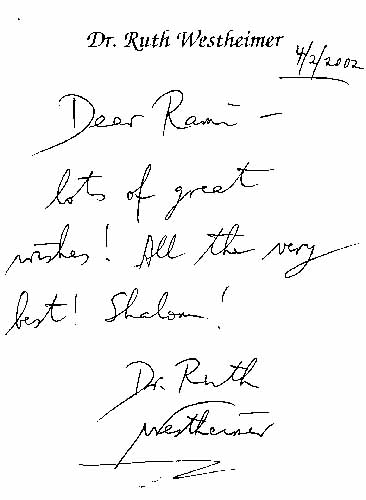 Dr. Ruth Westheimer
4/2/2002
Dear Rami –
lots of great
wishes! All the very
best! Shalom!
Dr. Ruth
Westheimer